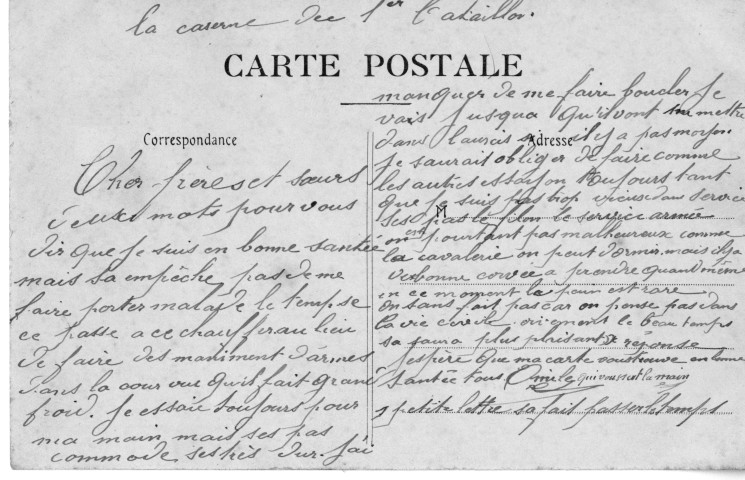 la caserne dee 1er Bataillon.
CARTE POSTALE
Correspondance
Cher frères et sœurs
deux mots pour vous
dir que je suis en bonne santée
mais sa empêche pas de me
faire porter malade le temp se
ce passe a ce chauffer au lieu
de faire des maniment d'armes
dans la cour vue quil fait grand
froid. je essaie toujours pour
ma main mais ses pas
commode ses très dur. j'ai
Adresse
manquer de me faire boucler je
vais jusqua qu'il vont me mettre
dans l'auxis si il y a pas moyen.
je saurais obliger de faire comme
les autres toujours tant
que je suis pas trop vieux dans service
ses pas le filon le service armée
on est pourtant pas malheureux comme
la cavalerie on peut dormir mais il y a
une bonne corvée a prendre quand même
en ce moment le pain est rare
on sans fait pas car on pense pas dans
la vie civile le beau temps
sa faura plus de reponse
j'espère que ma carte vous trouve en bonne
santée tous Emile qui vous sert la main
1 petite lettre sa fait passer le temps
M